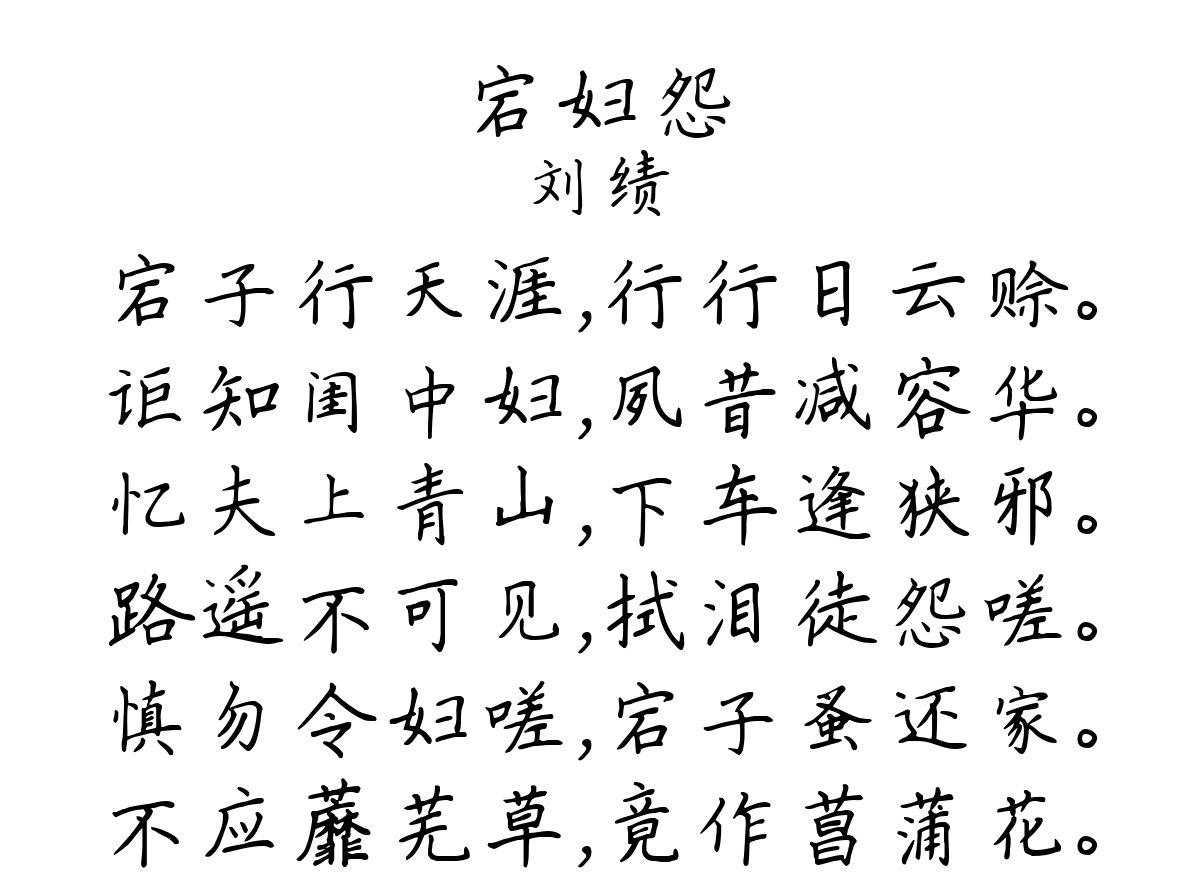 宕妇怨
刘绩
宕子行天涯,行行日云赊。
讵知闺中妇,夙昔减容华。
忆夫上青山,下车逢狭邪。
路遥不可见,拭泪徒怨嗟。
慎勿令妇嗟,宕子蚤还家。
不应蘼芜草,竟作菖蒲花。